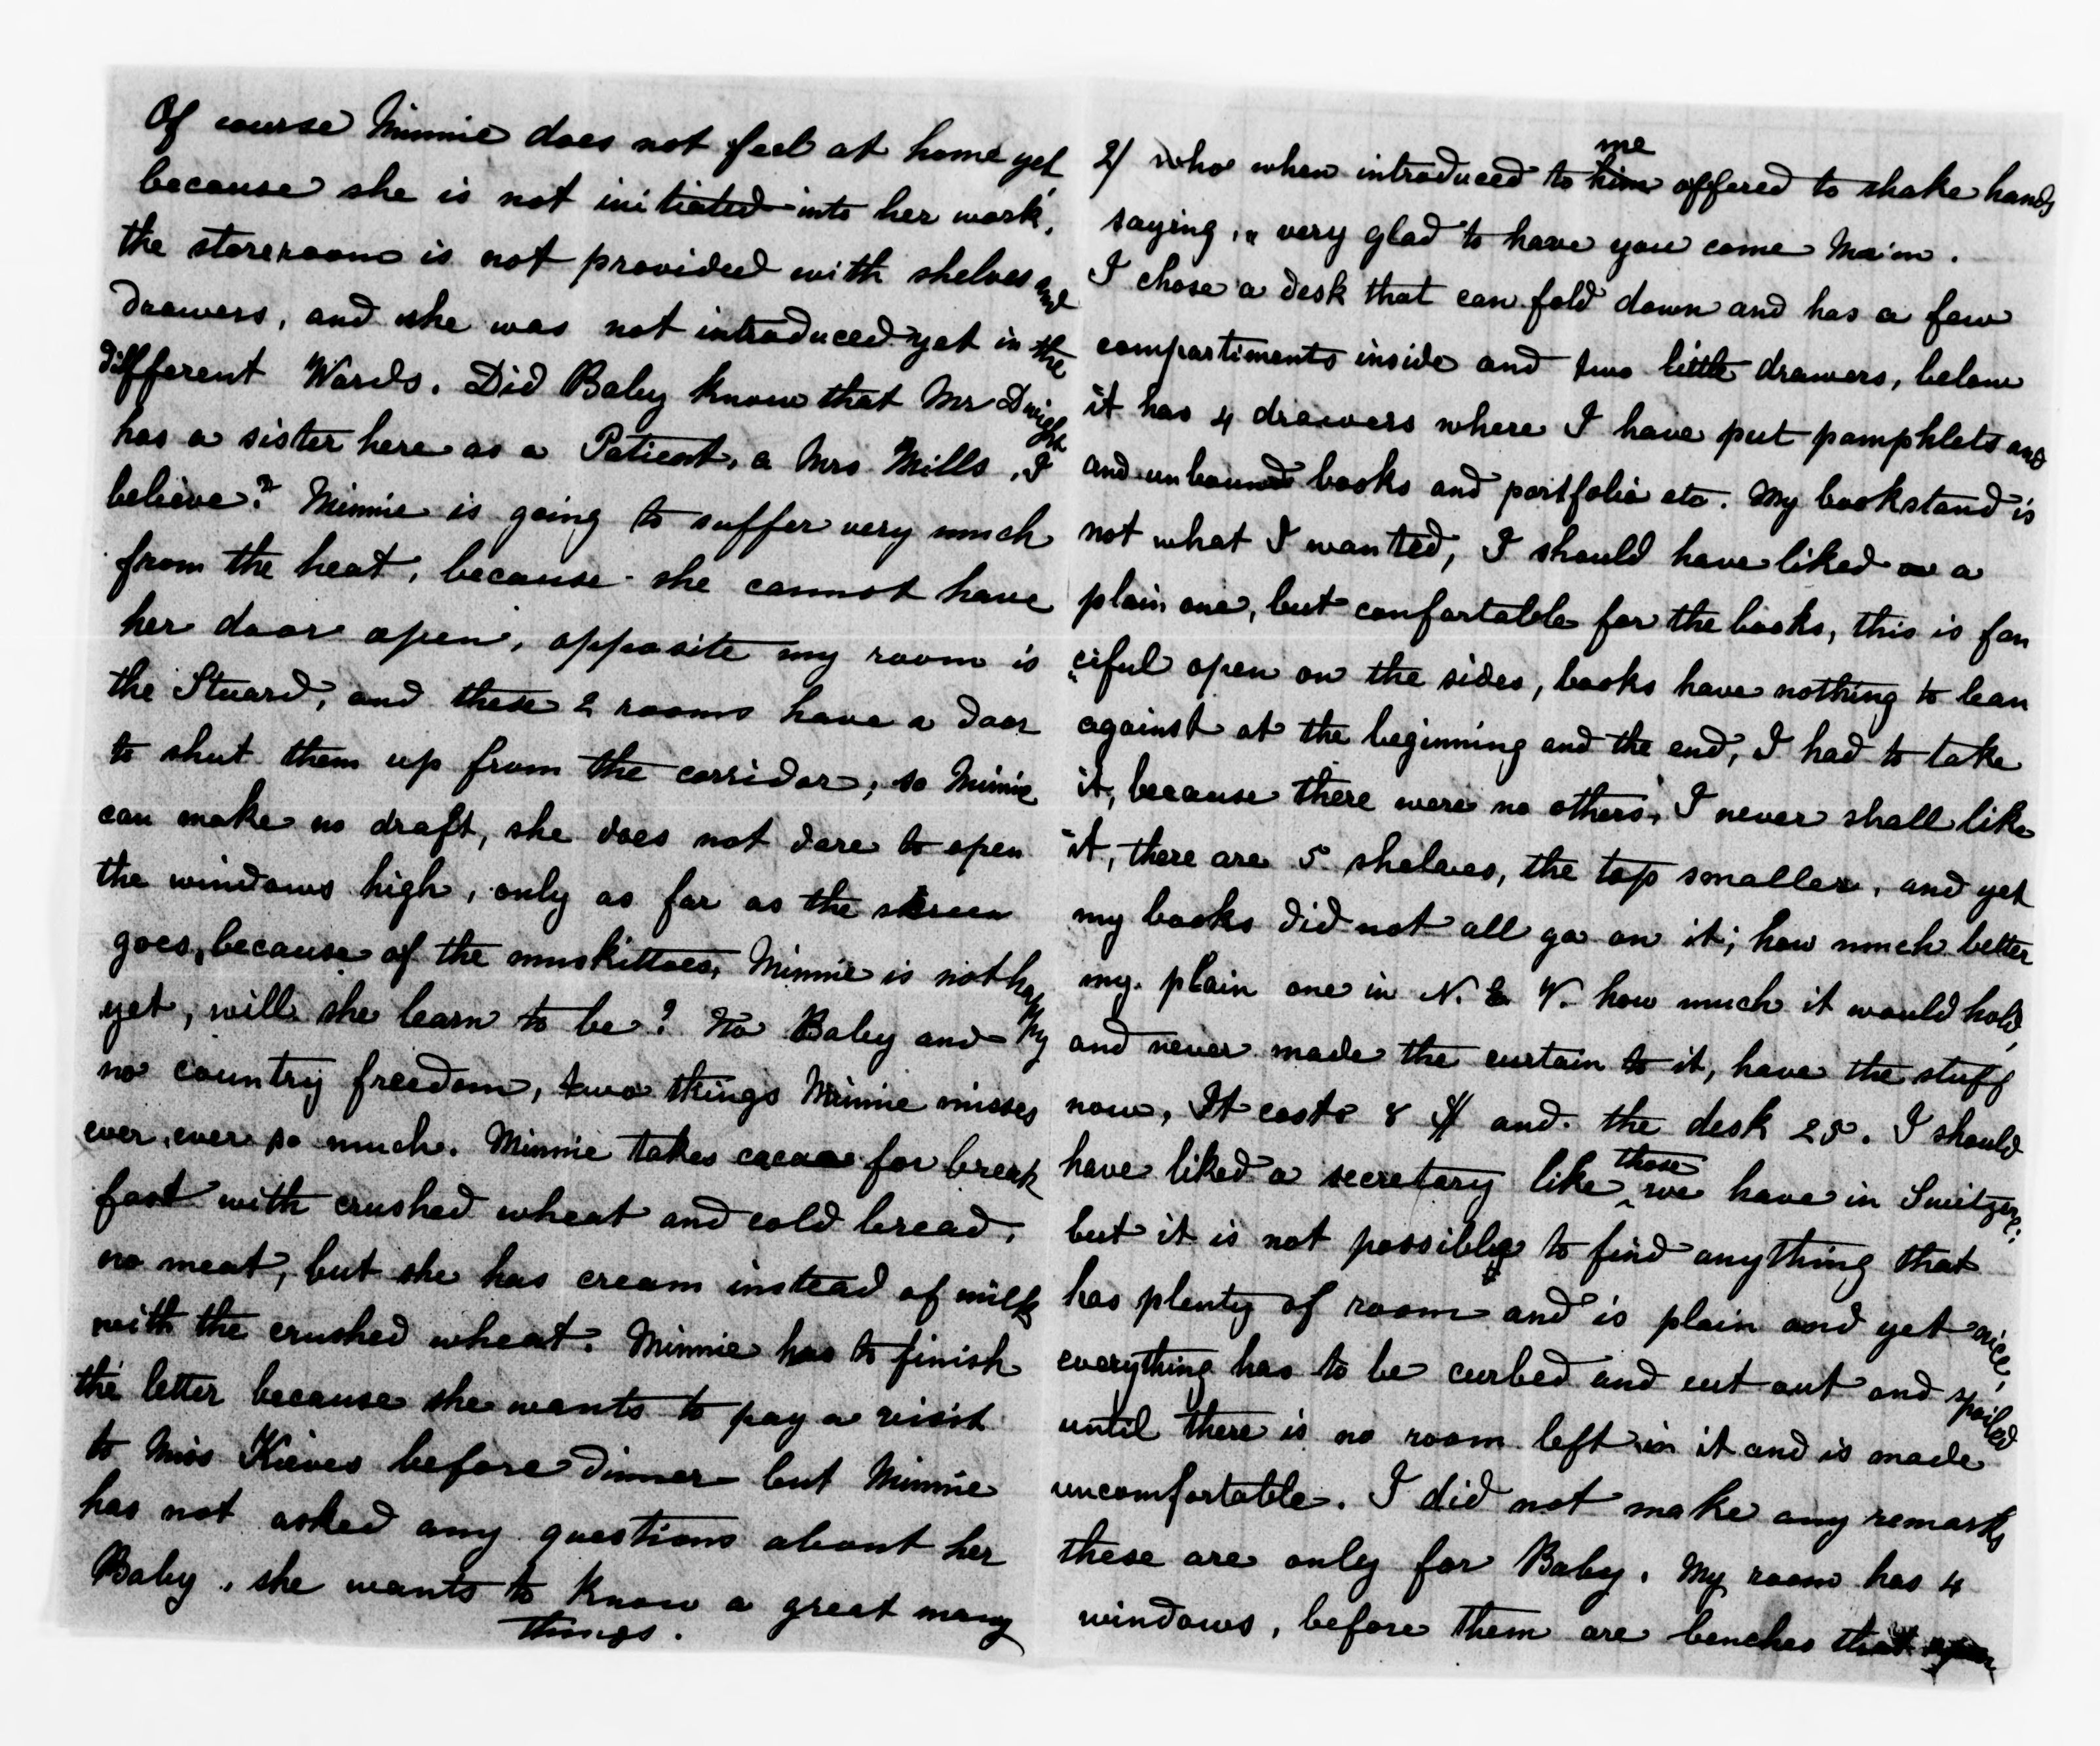 Of course Minnie does not feel at home yet
because she is not initiated into her work,
the storeroom is not provided with shelves and
drawers, and she was not introduced yet in the
different Wards. Did Baby know that Mr Dwight
has a sister here as a Patient, a Mrs Mills, I
believe? Minnie is going to suffer very much
from the heat, because she cannot have
her door open, opposite my room is
the Stuard, and these 2 rooms have a door
to shut them up from the corridor; so Minnie
can make no draft, she does not dare to open
the windows high, only as far as the screen
goes, because of the muskittoes, Minnie is not happy
yet, will she learn to be? No Baby and
no country freedom, two things Minnie misses
ever, ever so much. Minnie takes cacao for break
fast with crushed wheat and cold bread,
no meat, but she has cream instead of milk
with the crushed wheat. Minnie has to finish
the letter because she wants to pay a visit
to Miss Kieves before dinner but Minnie
has not asked any questions about her
Baby, she wants to know a great many
things.
2/ who when introduced to him me offered to shake hands
saying, „ very glad to have you come Ma'm.
I chose a desk that can fold down and has a few
compartiments inside and two little drawers, below
it has 4 drawers where I have put pamphlets and
and unbound books and portfolio etc. My bookstand is
not what I wanted, I should have liked a
plain one, but confortable for the books, this is fan
„ciful open on the sides, books have nothing to lean
against at the beginning and the end, I had to take
it, because there were no others, I never shall like
it, there are 5 shelves, the top smaller, and yet
my books did not all go on it; how much better
my plain one in N. & W. how much it would hold,
and never made the curtain to it, have the stuff
now, It costs 8 $ and the desk 25. I should
have liked a secretary like those we have in Switzer.
but it is not possible to find anything that
has plenty of room and is plain and yet nice,
everything has to be curbed and cut out and spoiled
until there is no room left in it and is made
uncomfortable. I did not make any remarks
these are only for Baby. My room has 4
windows, before them are benches that